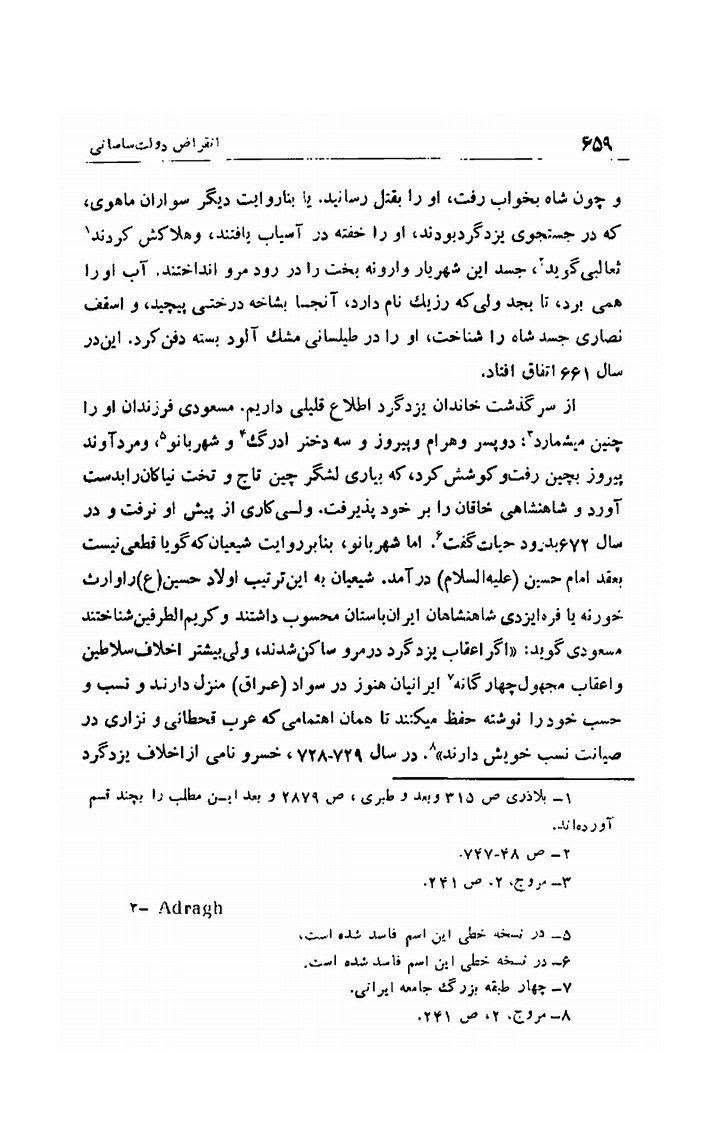 ۶۵۹ انقراض دولت ساسانی
و چون شاه بخواب رفت، او را بقتل رسانید. یا بناروایت دیگر سواران ماهوی،
که در جستجوی یزدگرد بودند، او را خفته در آسیاب یافتند، و هلاکش کردند۱
ثعالبی گوید۲، جسد این شهریار وارونه بخت را در رود مرو انداختند. آب او را
همی برد، تا بجد ولی که رزیک نام دارد، آنجا بشاخه درختی پیچید، و اسقف
نصاری جسد شاه را شناخت، او را در طیلسانی مشک آلود بسته دفن کرد. این در
سال ۶۶۱ اتفاق افتاد.
از سر گذشت خاندان یزدگرد اطلاع قلیلی داریم. مسعودی فرزندان او را
چنین میشمارد۳: دوپسر وهرام وپیروز و سه دختر ادرگ۴ و شهربانو۵، ومردآوند
پیروز بچین رفت و کوشش کرد، که بیاری لشگر چین تاج و تخت نیاکان را بدست
آورد و شاهنشاهی خاقان را بر خود پذیرفت. ولی کاری از پیش او نرفت و در
سال ۶۷۲ بدرود حیات گفت۶. اما شهربانو، بنابر روایت شیعیان که گویا قطعی نیست
بعقد امام حسین (علیه السلام) در آمد. شیعیان به این ترتیب اولاد حسین(ع) را وارث
خورنه یا فره ایزدی شاهنشاهان ایران باستان محسوب داشتند و کریم الطرفین شناختند
مسعودی گوید: «اگر اعقاب یزدگرد در مرو ساکن شدند، ولی بیشتر اخلاف سلاطین
و اعقاب مجهول چهار گانه۷ ایرانیان هنوز در سواد (عراق) منزل دارند و نسب و
حسب خود را نوشته حفظ میکنند تا همان اهتمامی که عرب قحطانی و نزاری در
صیانت نسب خویش دارند»۸. در سال ۷۲۹-۷۲۸، خسرو نامی از اخلاف یزدگرد
۱- بلاذری ص ۳۱۵ و بعد و طبری، ص ۲۸۷۹ و بعد این مطلب را بچند قسم
آورده‌اند.
۲- ص ۴۸-۷۴۷.
۳- مروج، ۲، ص ۲۴۱.
۴- Adragh
۵- در نسخه خطی این اسم فاسد شده است.
۶- در نسخه خطی این اسم فاسد شده است.
۷- چهار طبقه بزرگ جامعه ایرانی.
۸- مروج، ۲، ص ۲۴۱.